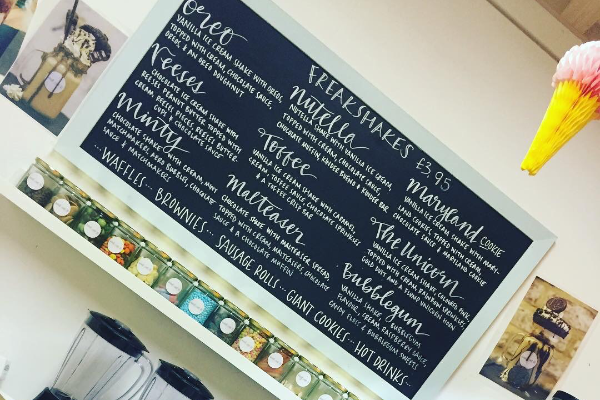 FREAKSHAKES £3.95
Oreo
VANILLA ICE CREAM SHAKE WITH OREOS
TOPPED WITH CREAM, CHOCOLATE SAUCE,
OREOS & AN OREO DOUGHNUT
Reeses
CHOCOLATE ICE CREAM SHAKE WITH
REESES PEANUT BUTTER TOPPED WITH
CREAM, REESES PIECES, REESES BUTTER
CUPS & CHOCOLATE SAUCE
Minty
CHOCOLATE SHAKE WITH CREAM, MINT
MATCHMAKERS, AERO BUBBLES, CHOCOLATE
SAUCE & MATCHMAKERS
Nutella
NUTELLA SHAKE WITH VANILLA ICE CREAM
TOPPED WITH CREAM, CHOCOLATE SAUCE,
CHOCOLATE MUFFIN, KINDER BUENO & KINDER BAR
Toffee
VANILLA ICE CREAM SHAKE WITH CARAMEL,
CREAM, TOFFEE SAUCE, CHOCOLATE SPRINKLES
& A TOFFEE CRISP BAR
Malteaser
CHOCOLATE SHAKE WITH MALTEASER SPREAD,
TOPPED WITH CREAM, MALTEASERS, CHOCOLATE
SAUCE & A CHOCOLATE MUFFIN
Maryland COOKIE
VANILLA ICE CREAM SHAKE WITH MARY-
LAND COOKIES, TOPPED WITH CREAM,
CHOCOLATE SAUCE & MARYLAND COOKIE
The Unicorn
VANILLA ICE CREAM SHAKE COLOURED PINK,
TOPPED WITH CREAM, RAINBOW SPRINKLES,
GOLD DUST AND A UNICORN HORN
Bubblegum
VANILLA SHAKE, BUBBLEGUM
FLAVOUR, CREAM, RASPBERRY SAUCE,
CANDY FLOSS & BUBBLEGUM SWEETS
...WAFFLES... BROWNIES... SAUSAGE ROLLS... GIANT COOKIES... HOT DRINKS...